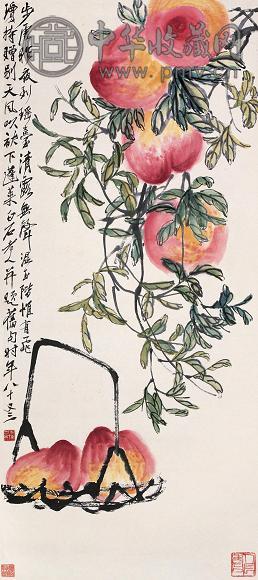 步虛昨夜到瑤臺清露無聲濕玉階惟有飛
瓊持贈別天風吹袂下蓬萊白石老人并題舊句時年八十三
中华收藏网